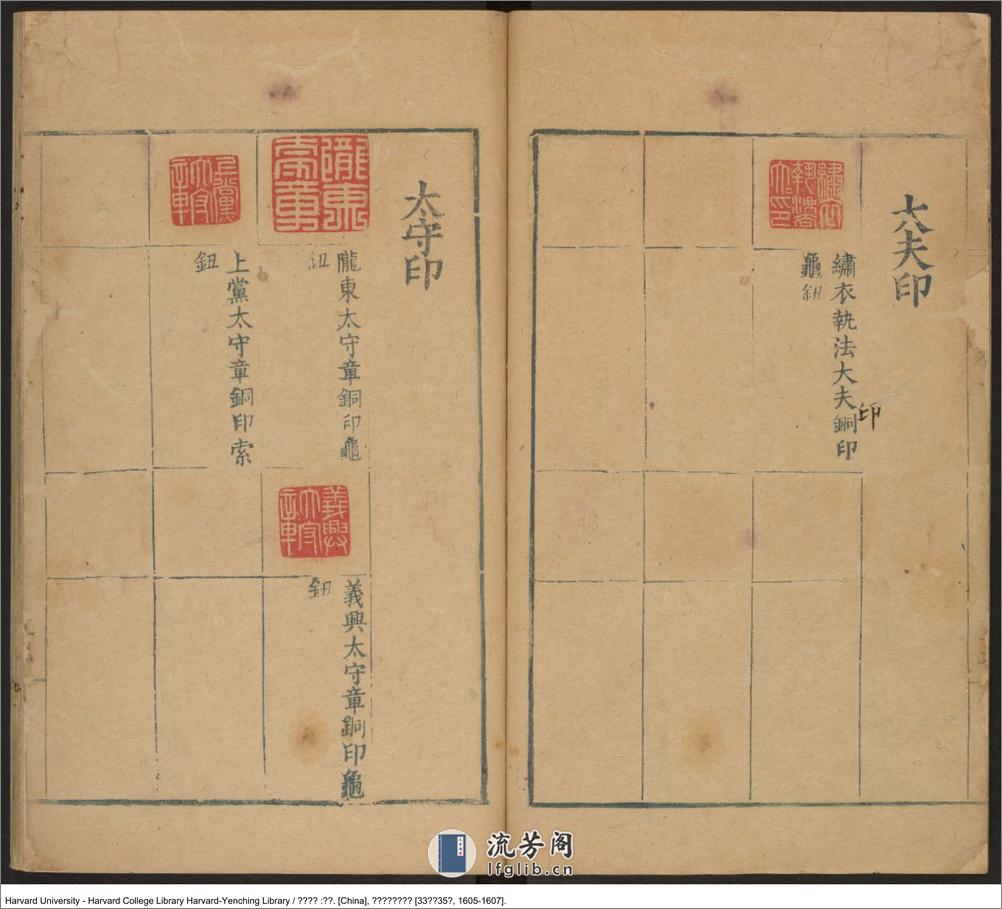 大夫印
繡衣執法大夫銅印
龜鈕
印
太守印
隴東太守章銅印龜
鈕
上黨太守章銅印索
鈕
義興太守章銅印龜
鈕
繡衣
執法
大夫印
隴東
太守章
上黨
太守章
義興
太守章
流芳阁
lfglib.cn
Harvard University - Harvard College Library Harvard-Yenching Library / ???? :??. [China], ???????? [33??35?, 1605-1607].